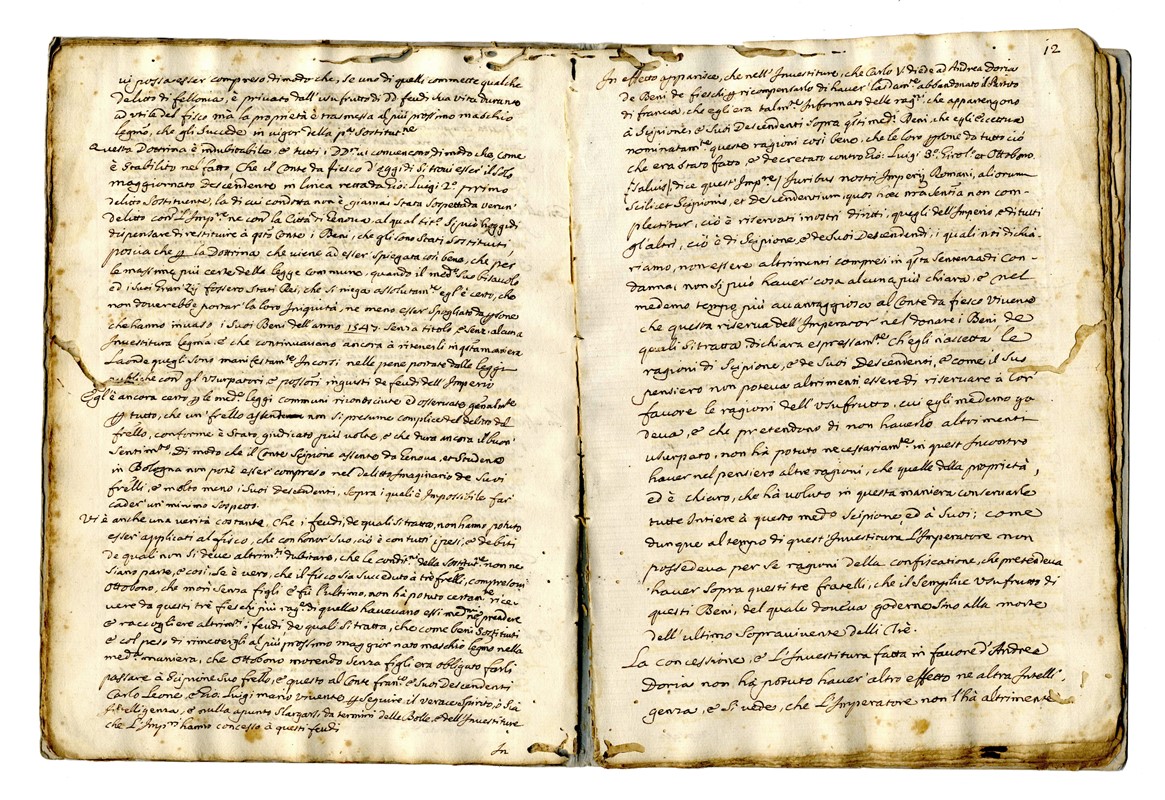 vi possa esser compreso di modo che, se uno di quelli commette qualche
delitto di fellonia, è privato dall'usufrutto di DD feudi sua vita durante
ad utile del fisco ma la proprietà è trasmessa al più prossimo maschio
legmo, che gli succede in vigor della pnte sostituzne
Questa Dottrina è indubitabile, e tutti i DDri vi convengono di modo che, come
è stabilito nel fatto, che il Conte da fiesco d'oggidi si trovi esser il solo
maggiornato descendente in linea retta da Gio: Luigi 2º primo
delito sostituente, la di cui condotta non è giamai stata sospetta da verun
delitto con l'Impre ne con la Città di Genova, al qual si può hoggidi
dispensare di restituire à qsto Conte i Beni, che gli sono stati sostituiti
posciache la Dottrina che viene ad esser spiegata così bene, che per
le massime più certe della legge commune, quando il medo suo bisavolo
ed i suoi fran Zij fossero stati Rei, che si niega assolutamte egl'è certo, che
non doverebbe portar la loro Iniquità, ne meno esser spogliato da psone
che hanno invaso i suoi Beni dell'anno 1547. senza titolo, e senz'alcuna
Investitura legma, e che continuavano ancora à ritenerli in qsta maniera
Laonde quegli sono manifestamte Incorsi nelle pene portate dalle leggi
publiche con gl'usurpatori, e possori ingiusti de feudi dell'Imperio
Egl'è ancora certo le mede leggi communi riconosciute ed osservate genalmte
tutto, che un frello assente non si presume complice del delitto del
frello, conforme è stato giudicato più volte, e che dura ancora il buon
sentimto, di modo che il Conte Scipione assente da Genova, et studente
in Bologna non potè esser compreso nel Delitto Imaginario de suoi
frelli, e molto meno i suoi descendenti, sopra i quali è Impossibile far
cader un minimo sospetto.
Vi è anche una verità costante, che i feudi, de quali si tratta, non hanno potuto
esser applicati al fisco, che con honor suo, ciò è con tutti i pesi, e debiti
de quali non si deve altrimti dubitare, che le conditi della sostituzne non ne
siano parte, e così, se è vero, che il fisco sia succeduto à trè frelli, compresoui
Ottobono, che morì senza figli, e fù l'ultimo, non hà potuto certante rice-
vere da questi trè fieschi più ragi di quella havevano essi medmi ne prendere
e raccogliere altrimti i feudi de quali si tratta, che come beni sostituiti
e col peso di rimettergli al più prossimo maggior nato maschio legmo nella
meda maniera, che Ottobono morendo senza figli era obligato farli
passare à Scipione suo frello, e questo al Conte franco, e suoi Descendenti
Carlo Leone, e Gio: Luigi mario vivente, seguire il verace spirito, ò sia
Intelligenza, e nulla apunt slargarsi da termini delle Bolle, e dell'Investiture
che l'Impri hanno concesso à questi feudi
In
12
In effetto apparisce, che nell'Investiture, che Carlo V diede ad Andrea Doria
de Beni de fieschi ricompensarlo di haver laudamte abandonato il Partito
di francia, che egli era talmte Informato delle ragi, che appartengono
à Scipione, e suoi Descendenti sopra qsti medi Beni, che egli Eccettua
nominatamte queste ragioni così bene, che le loro psone da tutto ciò
che era stato fatto, e decretato contro Gio: Luigi 3º Girolo et Ottobono.
/Saluis/ dice quest'Impre/ Iuribus nostri Imperij Romani, aliorum
scilicet Scipionis, et descendentium quos haec nra sentia non com-
plectitur, ciò è riservati i nostri diritti, quegli dell'Imperio, e di tutti
gl'altri, ciò è di Scipione, e de suoi Descendendi, i quali nri dichia-
riamo, non essere altrimenti compresi in qsta sentenza di Con-
danna, non si può haver cosa alcuna più chiara, e nel
medemo tempo più auantaggiosa al Conte da fiesco vivente
che questa riserva dell'Imperator nel donare i Beni de
quali si tratta: dichiara espressante ch'egli n'accetta le
ragioni di Scipione, e de suoi Descendenti, e come il suo
pensiero non poteva altrimenti essere di riservare à lor
favore le ragioni dell'usufrutto, cui egli medemo go
deva, e che pretendono di non haverlo altrimenti
usurpato, non hà potuto necessariamte in quest'Incontro
haver nel pensiero altre ragioni, che quelle della proprietà,
ed è chiaro, che hà voluto in questa maniera conservarle
tutte Intiere à questo medo Scipione, ed à suoi; come
dunque al tempo di quest'Investitura L'Imperatore non
possedeva per se ragioni della confiscatione, che pretendeva
haver sopra questi tre fratelli, che il semplice Usufrutto di
questi Beni, del quale doueua goderne sino alla morte
dell'ultimo sopravivente delli Trè.
La concessione, e L'Investitura fatta in favore d'Andrea
Doria non hà potuto haver altro effetto ne altra Intelli
genza, e si vede, che L'Imperatore non l'hà altrimente